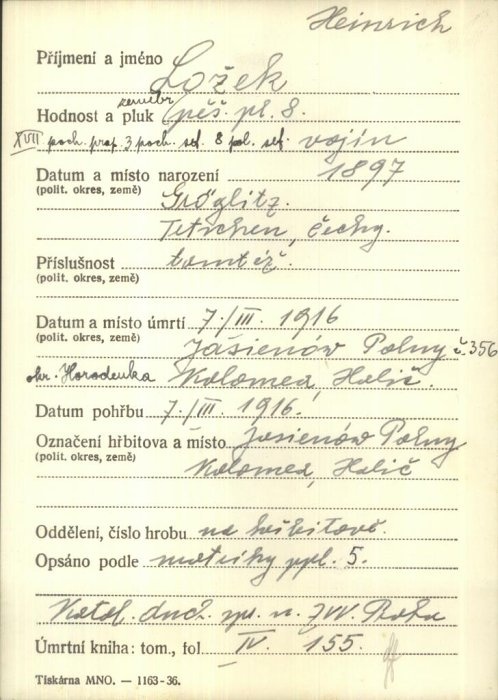 Heinrich
Příjmení a jméno Ložek
zeměbr.
Hodnost a pluk pěš. pl. 8.
XVII poch. prap. 3 poch. set. 8 pol. set. vojín
Datum a místo narození 1897
(polit. okres, země) Gröglitz.
Tetschen, Čechy.
Příslušnost tamtéž.
(polit. okres, země)
Datum a místo úmrtí 7./III. 1916
(polit. okres, země) Jasienów Polny č. 356
okr. Horodenka Kolomea, Halič.
Datum pohřbu 7./III. 1916.
Označení hřbitova a místo Jasienów Polny
(polit. okres, země) Kolomea, Halič
Oddělení, číslo hrobu na hřbitově.
Opsáno podle matriky ppl. 5.
Katol. duch. spr. n. ZVV. Praha
Úmrtní kniha: tom., fol. IV. 155.
Tiskárna MNO. — 1163-36.